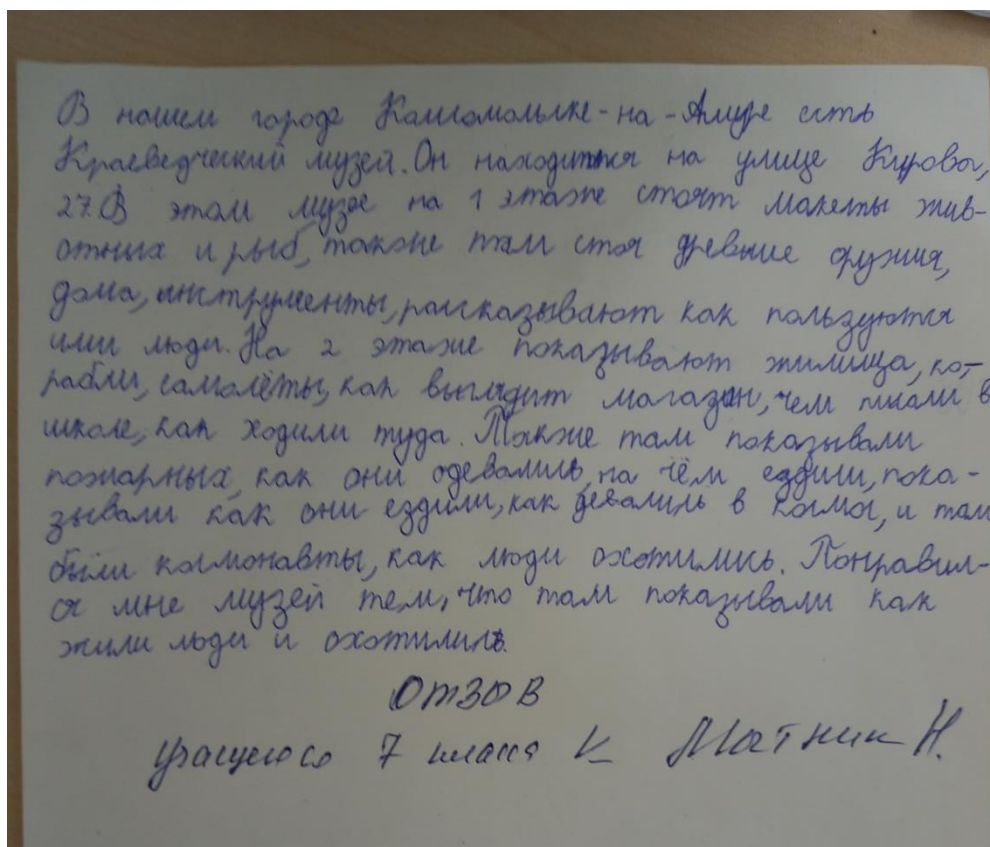 В нашем городе Комсомольке-на-Амуре есть
Краеведческий музей. Он находится на улице Кирова,
27. В этом музее на 1 этаже стоят макеты жив-
отных и рыб, также там стоя древние оружия,
дома, инструменты, рассказывают как пользуются
ими люди. На 2 этаже показывают жилища, ко-
рабли, самолёты, как выглядит магазин, чем писали в
школе, как ходили туда. Также там показывали
пожарных, как они одевались, на чём ездили, пока-
зывали как они ездили, как девались в космос, и там
были космонавты, как люди охотились. Понравил-
ся мне музей тем, что там показывали как
жили люди и охотились.
ОТЗЫВ
учащегося 7 класса К Матник Н.